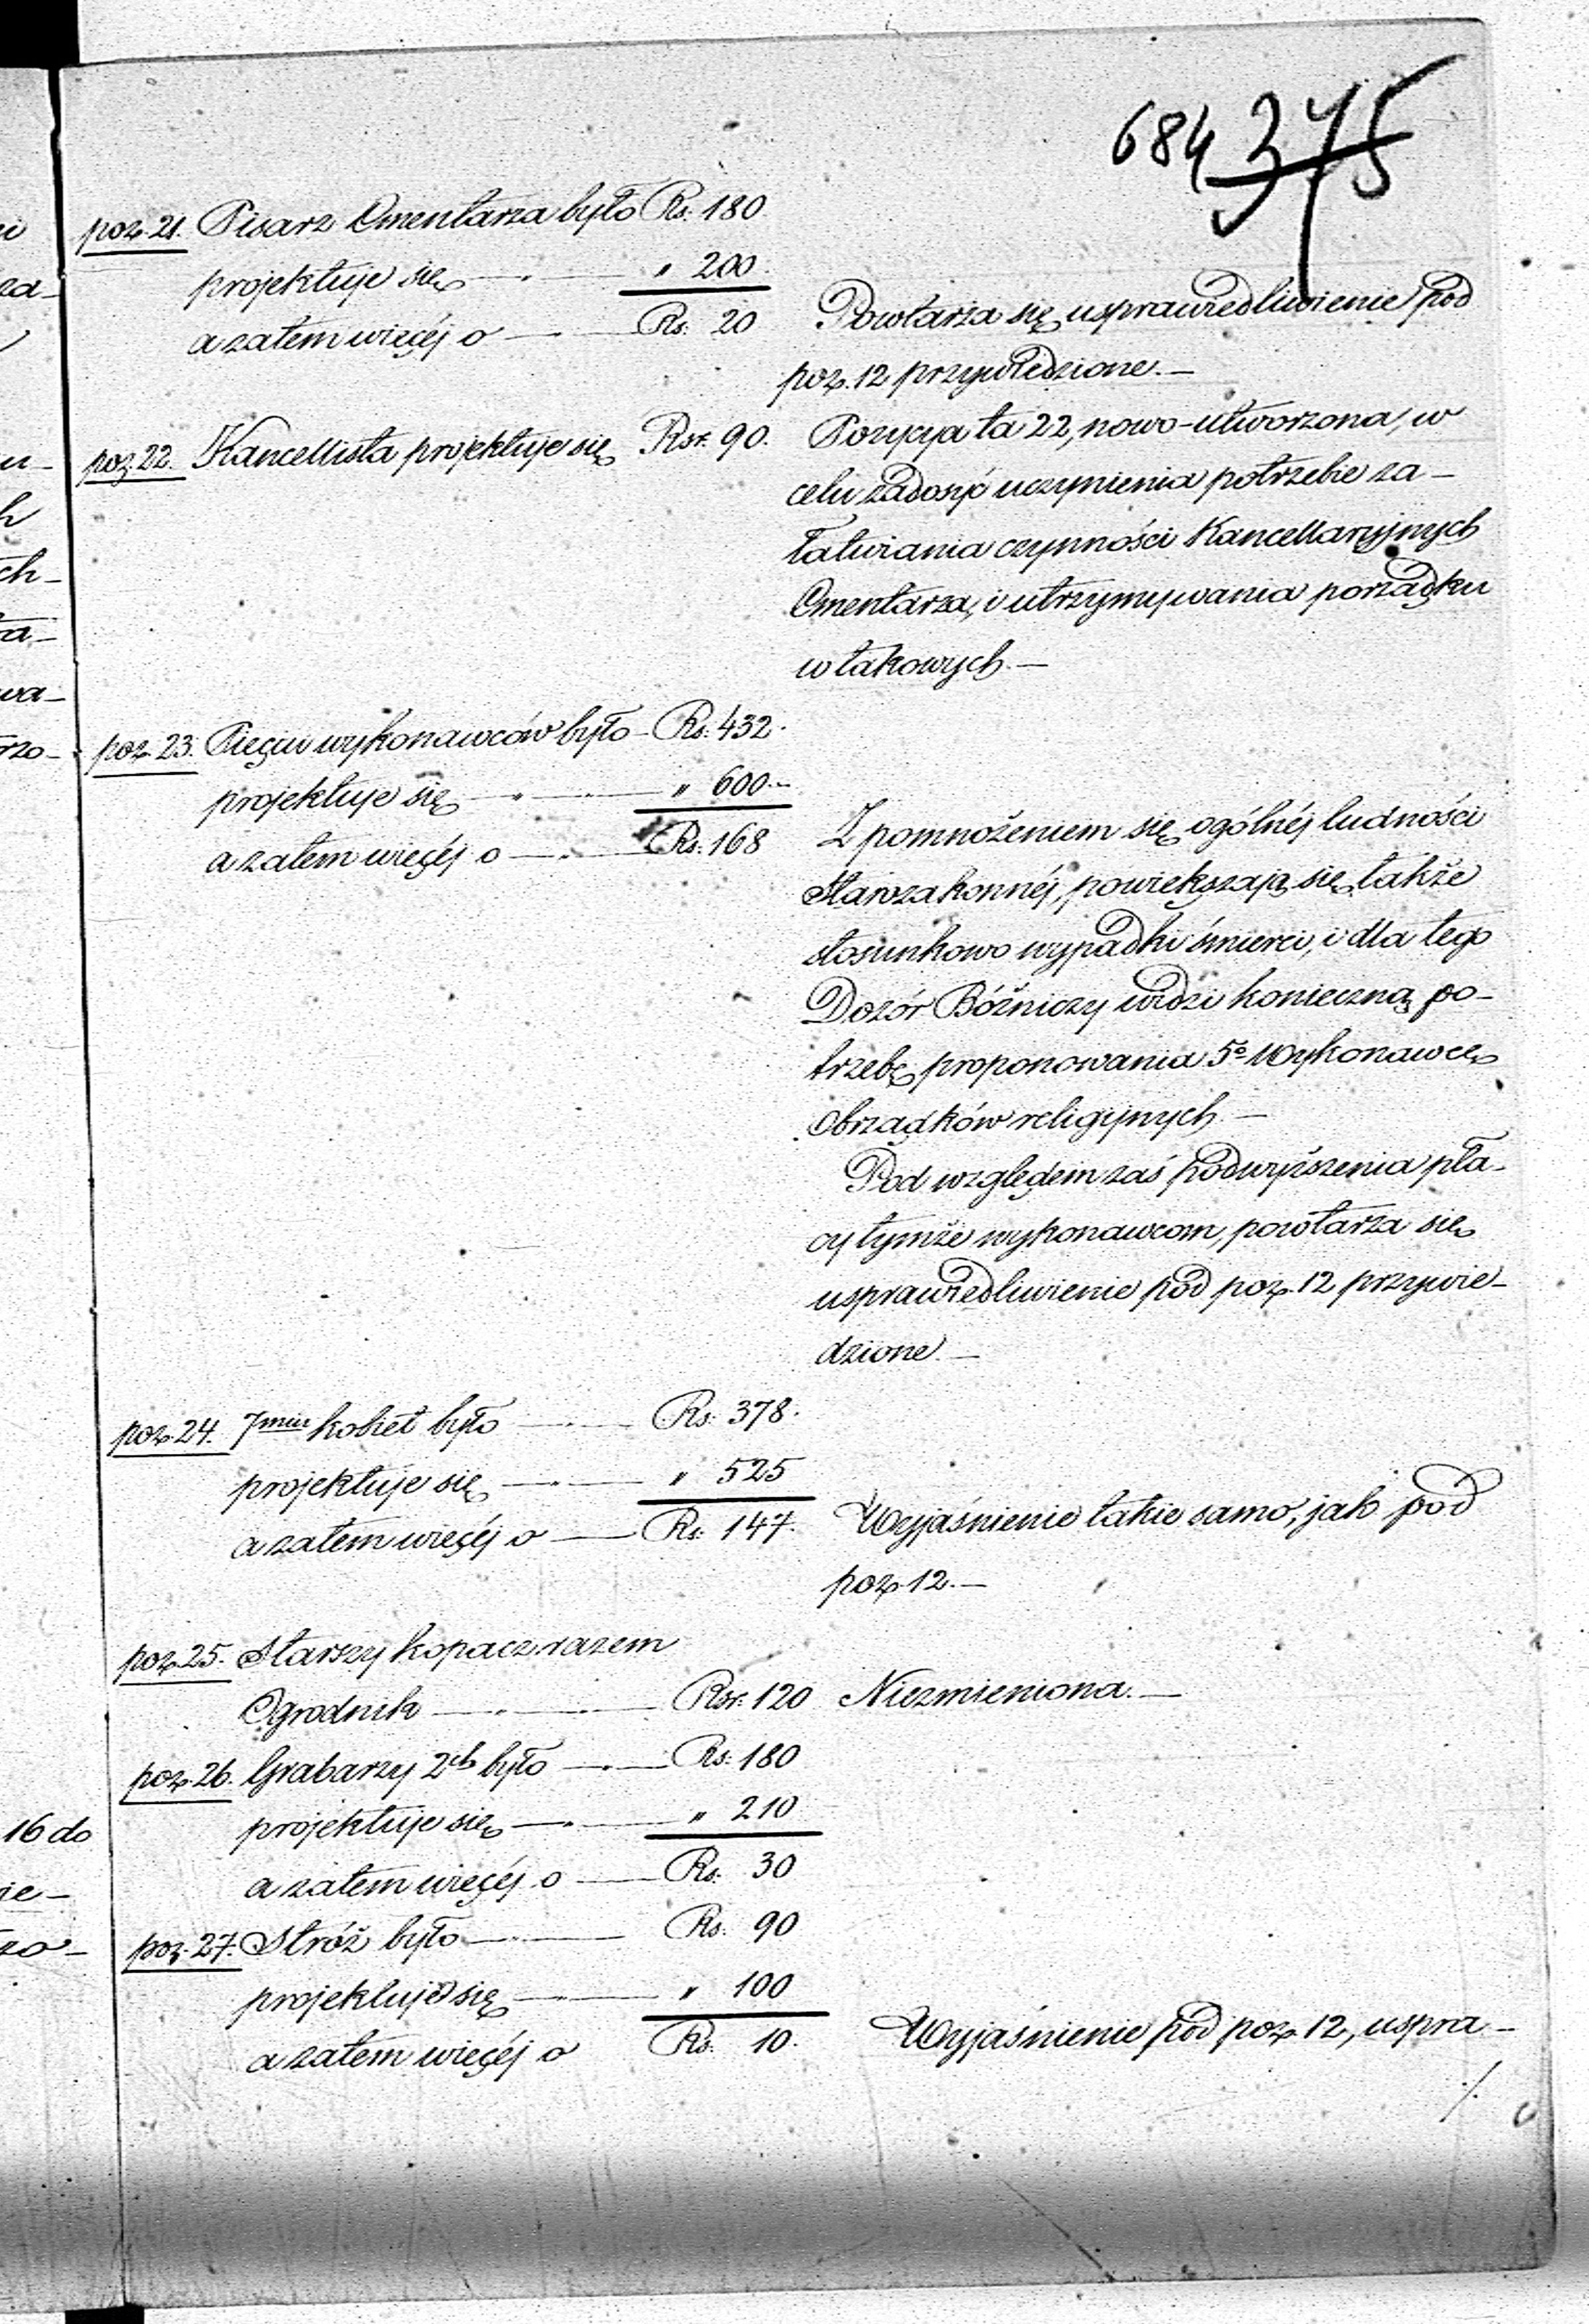 684 375
poz. 21. Pisarz Cmentarza było Rs. 180
projektuje się — " 200.
a zatem więcéj o — Rs. 20
Powtarza się usprawiedliwienie pod
poz. 12 przywiedzione.—
poz. 22. Kancellista projektuje się Rsr. 90.
Pozycya ta 22, nowo-utworzona, w
celu zadosyć uczynienia potrzebie za-
łatwiania czynności Kancellaryjnych
Cmentarza, i utrzymywania porządku
w takowych.—
poz. 23. Pięciu wykonawców było — Rs. 432.
projektuje się — " 600.—
a zatem więcéj o — Rs. 168
Z pomnożeniem się ogólnéj ludności
Starozakonnéj, powiekszają się także
stosunkowo wypadki śmierci, i dla tego
Dozór Bóżniczy widzi konieczną po-
trzebę proponowania 5º Wykonawcę
obrządków religijnych.—
Pod względem zaś podwyższenia pła-
cy tymże wykonawcom, powtarza się
usprawiedliwienie pod poz. 12 przywie-
dzione.—
poz. 24. 7miu kobiet było — Rs. 378.
projektuje się — " 525
a zatem więcéj o — Rs. 147.
Wyjaśnienie takie samo, jak pod
poz. 12.—
poz. 25. Starszy kopacz razem
Ogrodnik — Rsr. 120 Niezmieniona.—
poz. 26. Grabarzy 2ch było — Rs. 180
projektuje się — " 210
a zatem więcéj o — Rs. 30
poz. 27. Stróż było — Rs. 90
projektuje się — " 100
a zatem więcéj o Rs. 10.
Wyjaśnienie pod poz. 12, uspra-
./.
16 do